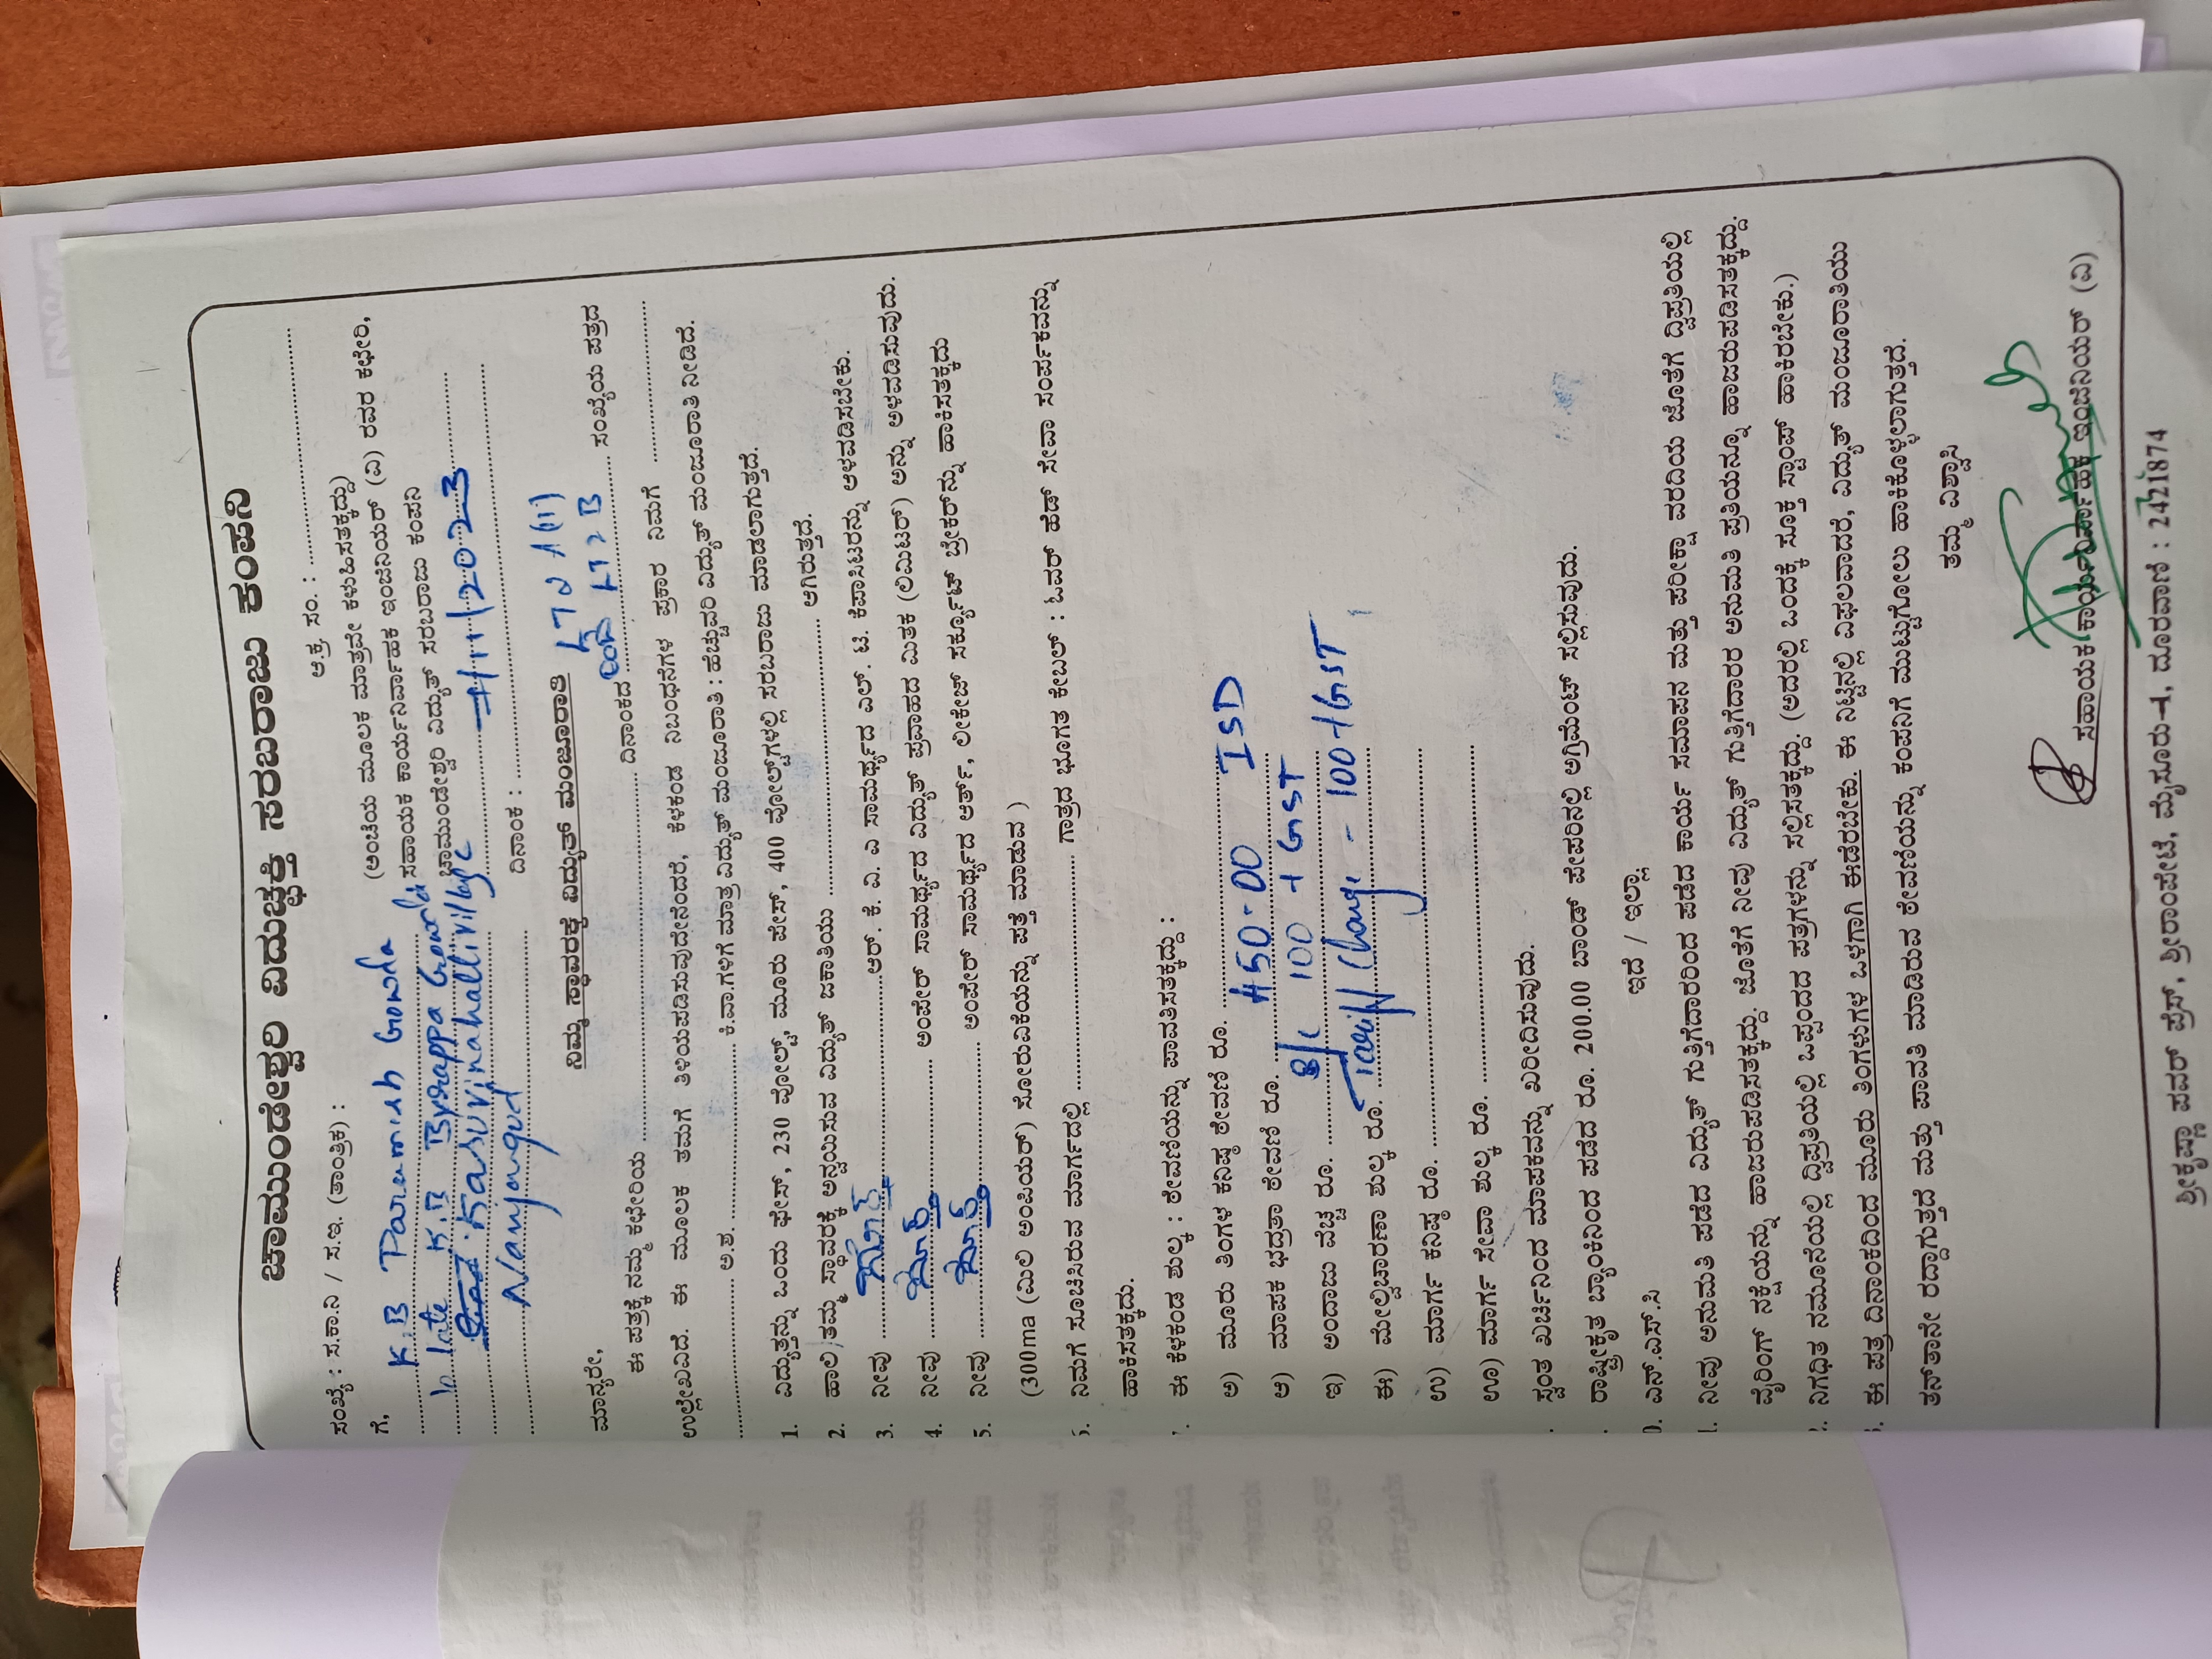 ಚಾಮುಂಡೇಶ್ವರಿ ವಿದ್ಯುಚ್ಛಕ್ತಿ ಸರಬರಾಜು ಕಂಪನಿ
ಸಂಖ್ಯೆ : ಸ.ಕಾ.ನಿ / ಸ.ಇ. (ತಾಂತ್ರಿಕ) : ಆ.ಕ್ರ. ಸಂ. :
ಗೆ, (ಅಂಚೆಯ ಮೂಲಕ ಮಾತ್ರವೇ ಕಳುಹಿಸತಕ್ಕದ್ದು)
K.B Paramesh Gowda ಸಹಾಯಕ ಕಾರ್ಯನಿರ್ವಾಹಕ ಇಂಜಿನಿಯರ್ (ವಿ) ರವರ ಕಛೇರಿ,
late K.B Byrappa Gowda ಚಾಮುಂಡೇಶ್ವರಿ ವಿದ್ಯುತ್ ಸರಬರಾಜು ಕಂಪನಿ
Kasuvinahallivillage 7/11/2023
Nanjangud ದಿನಾಂಕ :
ನಿಮ್ಮ ಸ್ಥಾವರಕ್ಕೆ ವಿದ್ಯುತ್ ಮಂಜೂರಾತಿ
ಮಾನ್ಯರೇ,
ಈ ಪತ್ರಕ್ಕೆ ನಮ್ಮ ಕಛೇರಿಯ ದಿನಾಂಕದ ಸಂಖ್ಯೆಯ ಪತ್ರದ
ಉಲ್ಲೇಖವಿದೆ. ಈ ಮೂಲಕ ತಮಗೆ ತಿಳಿಯಪಡಿಸುವುದೇನೆಂದರೆ, ಕೆಳಕಂಡ ನಿಬಂಧನೆಗಳ ಪ್ರಕಾರ ನಿಮಗೆ
ಅ.ಶ. ಕಿ.ವಾ.ಗಳಿಗೆ ಮಾತ್ರ ವಿದ್ಯುತ್ ಮಂಜೂರಾತಿ : ಹೆಚ್ಚುವರಿ ವಿದ್ಯುತ್ ಮಂಜೂರಾತಿ ನೀಡಿದೆ.
1. ವಿದ್ಯುತ್ತನ್ನು ಒಂದು ಫೇಸ್, 230 ವೋಲ್ಟ್, ಮೂರು ಪೇಸ್, 400 ವೋಲ್ಟ್‌ಗಳಲ್ಲಿ ಸರಬರಾಜು ಮಾಡಲಾಗುತ್ತದೆ.
2. ಹಾಲಿ/ತಮ್ಮ ಸ್ಥಾವರಕ್ಕೆ ಅನ್ವಯಿಸುವ ವಿದ್ಯುತ್ ಜಕಾತಿಯ ಆಗಿರುತ್ತದೆ.
3. ನೀವು ಆರ್. ಕೆ. ವಿ. ಎ ಸಾಮರ್ಥ್ಯದ ಎಲ್. ಟಿ. ಕೆಪಾಸಿಟರನ್ನು ಅಳವಡಿಸಬೇಕು.
4. ನೀವು ಅಂಪೇರ್ ಸಾಮರ್ಥ್ಯದ ವಿದ್ಯುತ್ ಪ್ರವಾಹದ ಮಿತಕ (ಲಿಮಿಟರ್) ಅನ್ನು ಅಳವಡಿಸುವುದು.
5. ನೀವು ಅಂಪೇರ್ ಸಾಮರ್ಥ್ಯದ ಆರ್ತ್, ಲೀಕೇಜ್ ಸರ್ಕ್ಯೂಟ್ ಬ್ರೇಕರ್‌ನ್ನು ಹಾಕಿಸತಕ್ಕದು
(300ma (ಮಿಲಿ ಅಂಪಿಯರ್) ಸೋರುವಿಕೆಯನ್ನು ಪತ್ತೆ ಮಾಡುವ )
ನಿಮಗೆ ಸೂಚಿಸಿರುವ ಮಾರ್ಗದಲ್ಲಿ ಗಾತ್ರದ ಭೂಗತ ಕೇಬಲ್ : ಓವರ್ ಹೆಡ್ ಸೇವಾ ಸಂಪರ್ಕವನ್ನು
ಹಾಕಿಸತಕ್ಕದು.
ಈ ಕೆಳಕಂಡ ಶುಲ್ಕ : ಠೇವಣಿಯನ್ನು ಪಾವತಿಸತಕ್ಕದ್ದು :
ಅ) ಮೂರು ತಿಂಗಳ ಕನಿಷ್ಠ ಠೇವಣಿ ರೂ. 450-00 ISD
ಆ) ಮಾಪಕ ಭದ್ರತಾ ಠೇವಣಿ ರೂ. 100 + GST
ಇ) ಅಂದಾಜು ವೆಚ್ಚ ರೂ.
ಈ) ಮೇಲ್ವಿಚಾರಣಾ ಶುಲ್ಕ ರೂ. Tariff Change - 100 + GST
ಉ) ಮಾರ್ಗ ಕನಿಷ್ಠ ರೂ.
ಊ) ಮಾರ್ಗ ಸೇವಾ ಶುಲ್ಕ ರೂ.
ಸ್ವಂತ ಖರ್ಚಿನಿಂದ ಮಾಪಕವನ್ನು ಖರೀದಿಸುವುದು.
ರಾಷ್ಟ್ರೀಕೃತ ಬ್ಯಾಂಕಿನಿಂದ ಪಡೆದ ರೂ. 200.00 ಬಾಂಡ್ ಪೇಪರಿನಲ್ಲಿ ಅಗ್ರಿಮೆಂಟ್ ಸಲ್ಲಿಸುವುದು.
0. ಎನ್.ಎಸ್.ಸಿ ಇದೆ / ಇಲ್ಲಾ
1. ನೀವು ಅನುಮತಿ ಪಡೆದ ವಿದ್ಯುತ್ ಗುತ್ತಿಗೆದಾರರಿಂದ ಪಡೆದ ಕಾರ್ಯ ಸಮಾಪನ ಮತ್ತು ಪರೀಕ್ಷಾ ವರದಿಯ ಜೊತೆಗೆ ದ್ವಿಪ್ರತಿಯಲ್ಲಿ
ವೈರಿಂಗ್ ನಕ್ಷೆಯನ್ನು ಹಾಜರುಪಡಿಸತಕ್ಕದ್ದು. ಜೊತೆಗೆ ನೀವು ವಿದ್ಯುತ್ ಗುತ್ತಿಗೆದಾರರ ಅನುಮತಿ ಪ್ರತಿಯನ್ನೂ ಹಾಜರುಪಡಿಸತಕ್ಕದ್ದು.
2. ನಿಗಧಿತ ನಮೂನೆಯಲ್ಲಿ ದ್ವಿಪ್ರತಿಯಲ್ಲಿ ಒಪ್ಪಂದದ ಪತ್ರಗಳನ್ನು ಸಲ್ಲಿಸತಕ್ಕದ್ದು. (ಅದರಲ್ಲಿ ಒಂದಕ್ಕೆ ಸೂಕ್ತ ಸ್ಟಾಂಪ್ ಹಾಕಿರಬೇಕು.)
3. ಈ ಪತ್ರ ದಿನಾಂಕದಿಂದ ಮೂರು ತಿಂಗಳುಗಳ ಒಳಗಾಗಿ ಈಡೆರಬೇಕು. ಈ ನಿಟ್ಟಿನಲ್ಲಿ ವಿಫಲವಾದರೆ, ವಿದ್ಯುತ್ ಮಂಜೂರಾತಿಯು
ತನ್‌ತಾನೇ ರದ್ದಾಗುತ್ತದೆ ಮತ್ತು ಪಾವತಿ ಮಾಡಿರುವ ಠೇವಣಿಯನ್ನು ಕಂಪನಿಗೆ ಮುಟ್ಟುಗೋಲು ಹಾಕಿಕೊಳ್ಳಲಾಗುತ್ತದೆ.
ತಮ್ಮ ವಿಶ್ವಾಸಿ
ಸಹಾಯಕ ಕಾರ್ಯನಿರ್ವಾಹಕ ಇಂಜಿನಿಯರ್ (ವಿ)
ಶ್ರೀಕೃಷ್ಣಾ ಪವರ್ ಪ್ರೆಸ್, ಶ್ರೀರಾಂಪೇಟೆ, ಮೈಸೂರು-1, ದೂರವಾಣಿ : 2421874